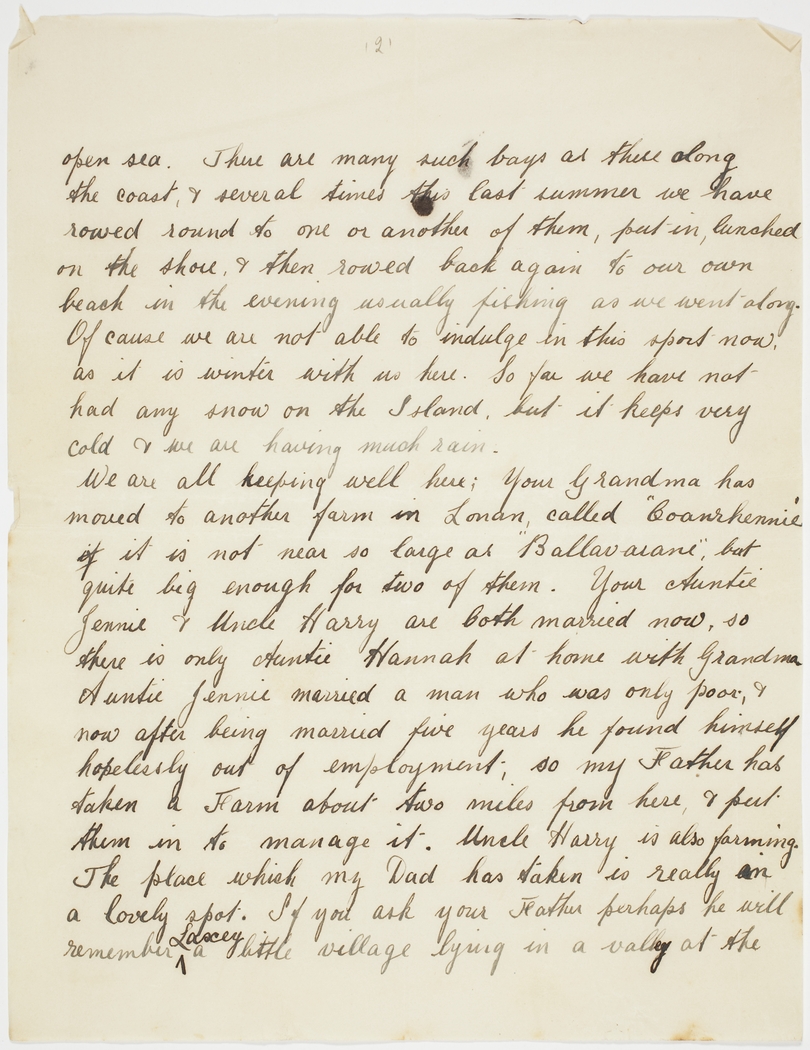 2
open sea. There are many such bays as these along
the coast, & several times this last summer we have
rowed round to one or another of them, put in, lunched
on the shore, & then rowed back again to our own
beach in the evening usually fishing as we went along.
Of cause we are not able to indulge in this sport now,
as it is winter with us here. So far we have not
had any snow on the Island, but it keeps very
cold & we are having much rain.
We are all keeping well here; Your Grandma has
moved to another farm in Lonan, called "Coanrhennie"
if it is not near so large as "Ballavarane", but
quite big enough for two of them. Your Auntie
Jennie & Uncle Harry are both married now, so
there is only Auntie Hannah at home with Grandma
Auntie Jennie married a man who was only poor, &
now after being married five years he found himself
hopelessly out of employment, so my Father has
taken a Farm about two miles from here, & put
them in to manage it. Uncle Harry is also farming.
The place which my Dad has taken is really in
a lovely spot. If you ask your Father perhaps he will
remember Laxey a little village lying in a valley at the